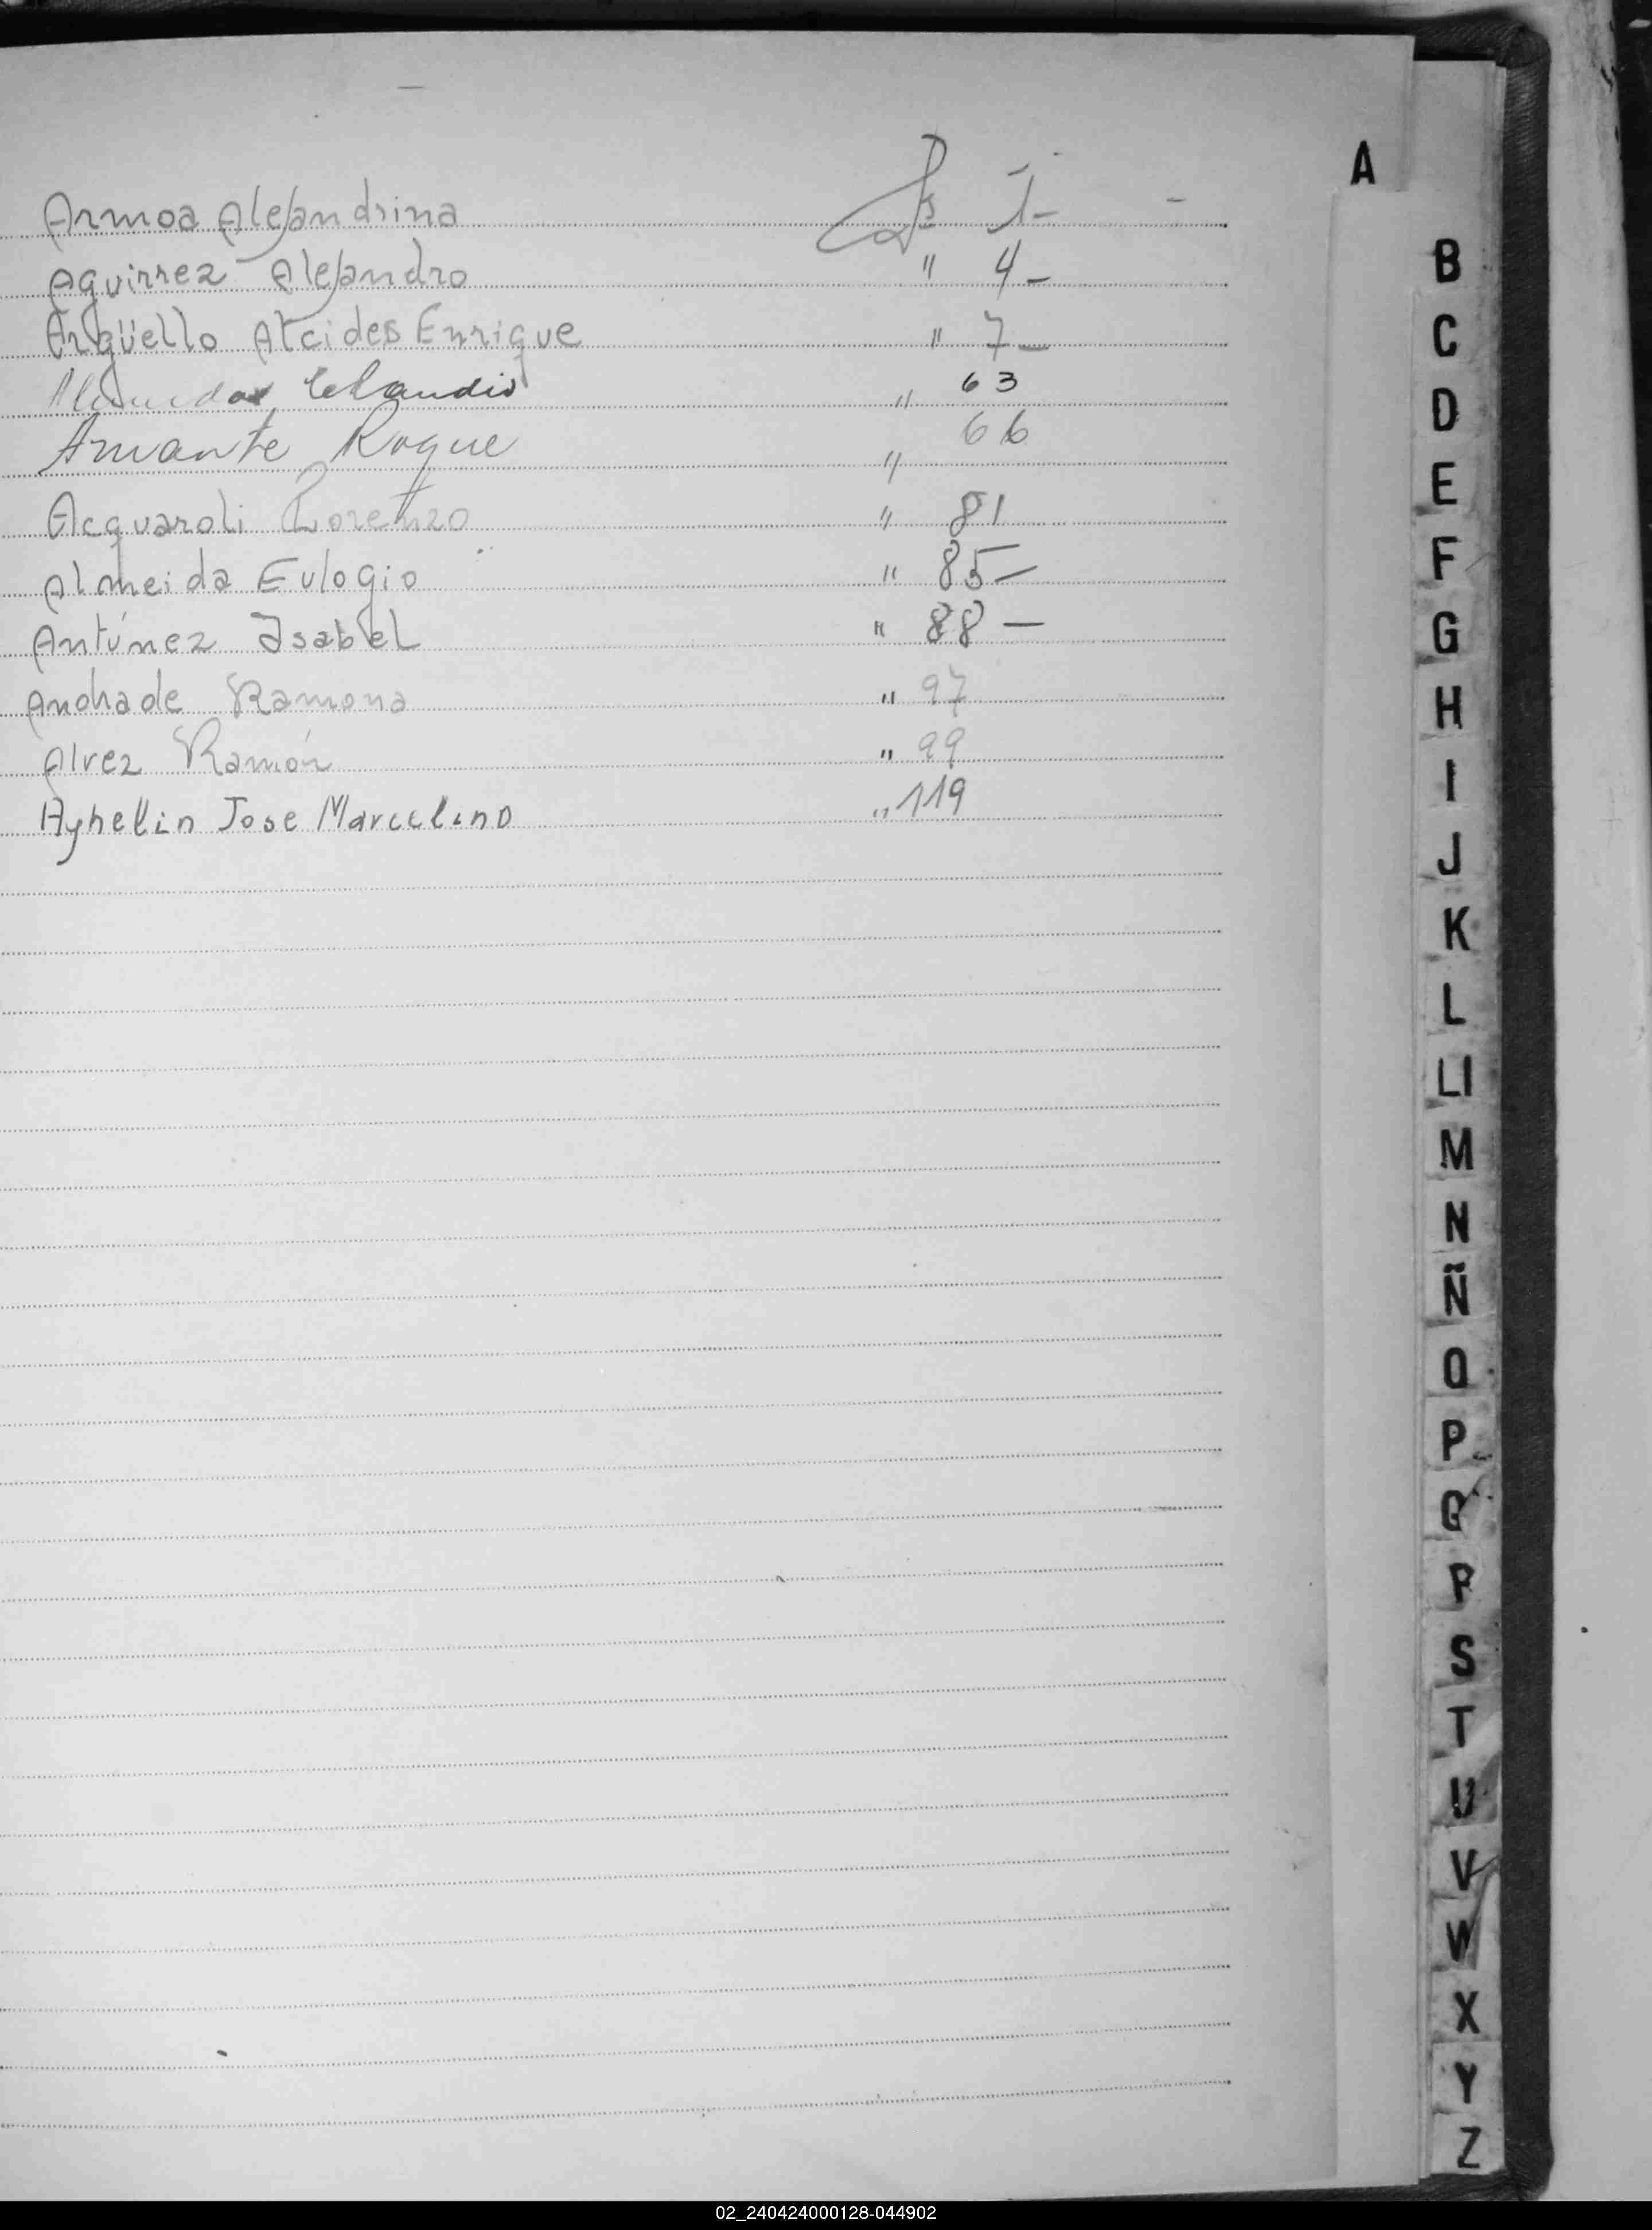 A
Armoa Alejandrina Fs 1-
Aguirrez Alejandro " 4-
Argüello Alcides Enrique " 7-
Claudio " 63
Amante Roque " 66
Acquaroli Lorenzo " 81
Almeida Eulogio " 85-
Antúnez Isabel " 88-
Andrade Ramona " 97
Alvez Ramón " 99
Ayhellin Jose Marcelino " 119
B
C
D
E
F
G
H
I
J
K
L
Ll
M
N
Ñ
O
P
Q
R
S
T
U
V
W
X
Y
Z
02_240424000128-044902